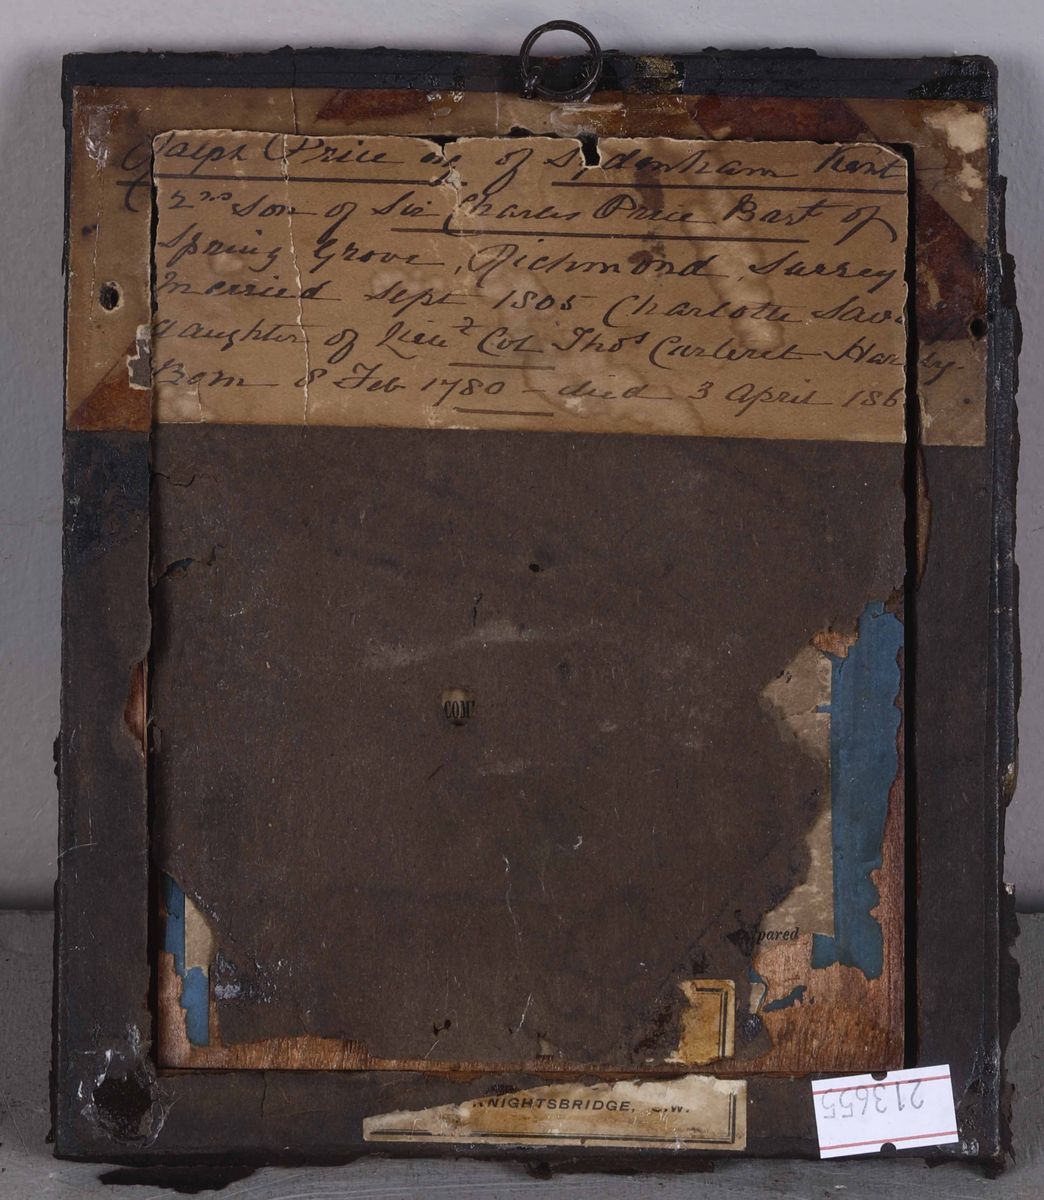 Ralph Price esq of Sydenham Kent
2nd son of Sir Charles Price Bart of
Spring Grove, Richmond, Surrey
Married Sept 1805 Charlotte Sav
daughter of Lieut Col Thos Carteret Hardy.
Born 8 Feb 1780 - died 3 April 186
COM
pared
KNIGHTSBRIDGE, S.W.
213655